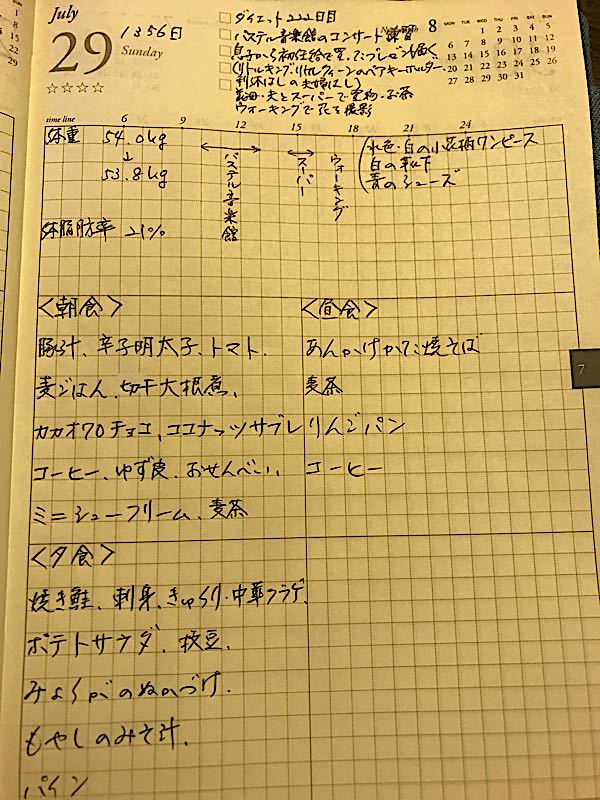 July
29
Sunday
☆☆☆☆
1356日
ダイエット222日目
パステル音楽館のコンサート 練習
息子から初任給で買ったプレゼント届く
(リトルキング・リトルクィーンのペアキーホルダー、
利休ばしの夫婦ばし)
義母・夫とスーパーで買物・お茶
ウォーキングで花を撮影
8
MON TUE WED THU FRI SAT SUN
1 2 3 4 5
6 7 8 9 10 11 12
13 14 15 16 17 18 19
20 21 22 23 24 25 26
27 28 29 30 31
time line 6 9 12 15 18 21 24
体重 54.0kg
↓
53.8kg
体脂肪率 21%
パステル音楽館
スーパー
ウォーキング
(水色・白の小花柄ワンピース
白の靴下
青のシューズ
<朝食>
豚汁、辛子明太子、トマト、
麦ごはん、切干大根煮、
カカオ70チョコ、ココナッツサブレ
コーヒー、ゆず皮、おせんべい、
ミニシュークリーム、麦茶
<昼食>
あんかけかた焼そば
麦茶
りんごパン
コーヒー
7
<夕食>
焼き鮭、刺身、きゅうり・中華クラゲ、
ポテトサラダ、枝豆、
みょうがのぬかづけ、
もやしのみそ汁、
パイン